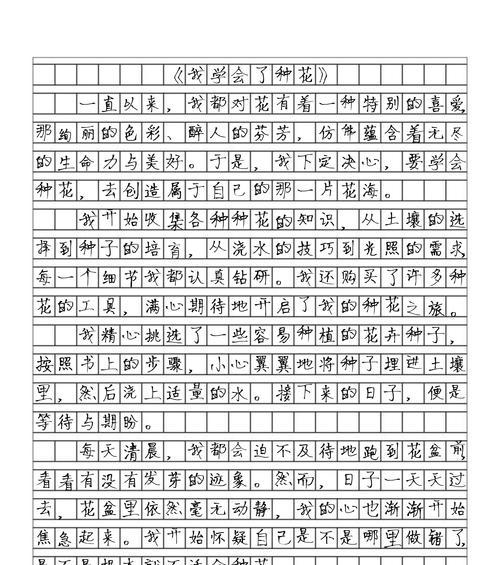 《我学会了种花》
一直以来，我都对花有着一种特别的喜爱，
那绚丽的色彩、醉人的芬芳，仿佛蕴含着无尽
的生命力与美好。于是，我下定决心，要学会
种花，去创造属于自己的那一片花海。
我开始收集各种种花的知识，从土壤的选
择到种子的培育，从浇水的技巧到光照的需求，
每一个细节我都认真钻研。我还购买了许多种
花的工具，满心期待地开启了我的种花之旅。
我精心挑选了一些容易种植的花卉种子，
按照书上的步骤，小心翼翼地将种子埋进土壤
里，然后浇上适量的水。接下来的日子，便是
等待与期盼。
每天清晨，我都会迫不及待地跑到花盆前，
看看有没有发芽的迹象。然而，日子一天天过
去，花盆里依然毫无动静，我的心也渐渐开始
焦急起来。我开始怀疑自己是不是哪里做错了，